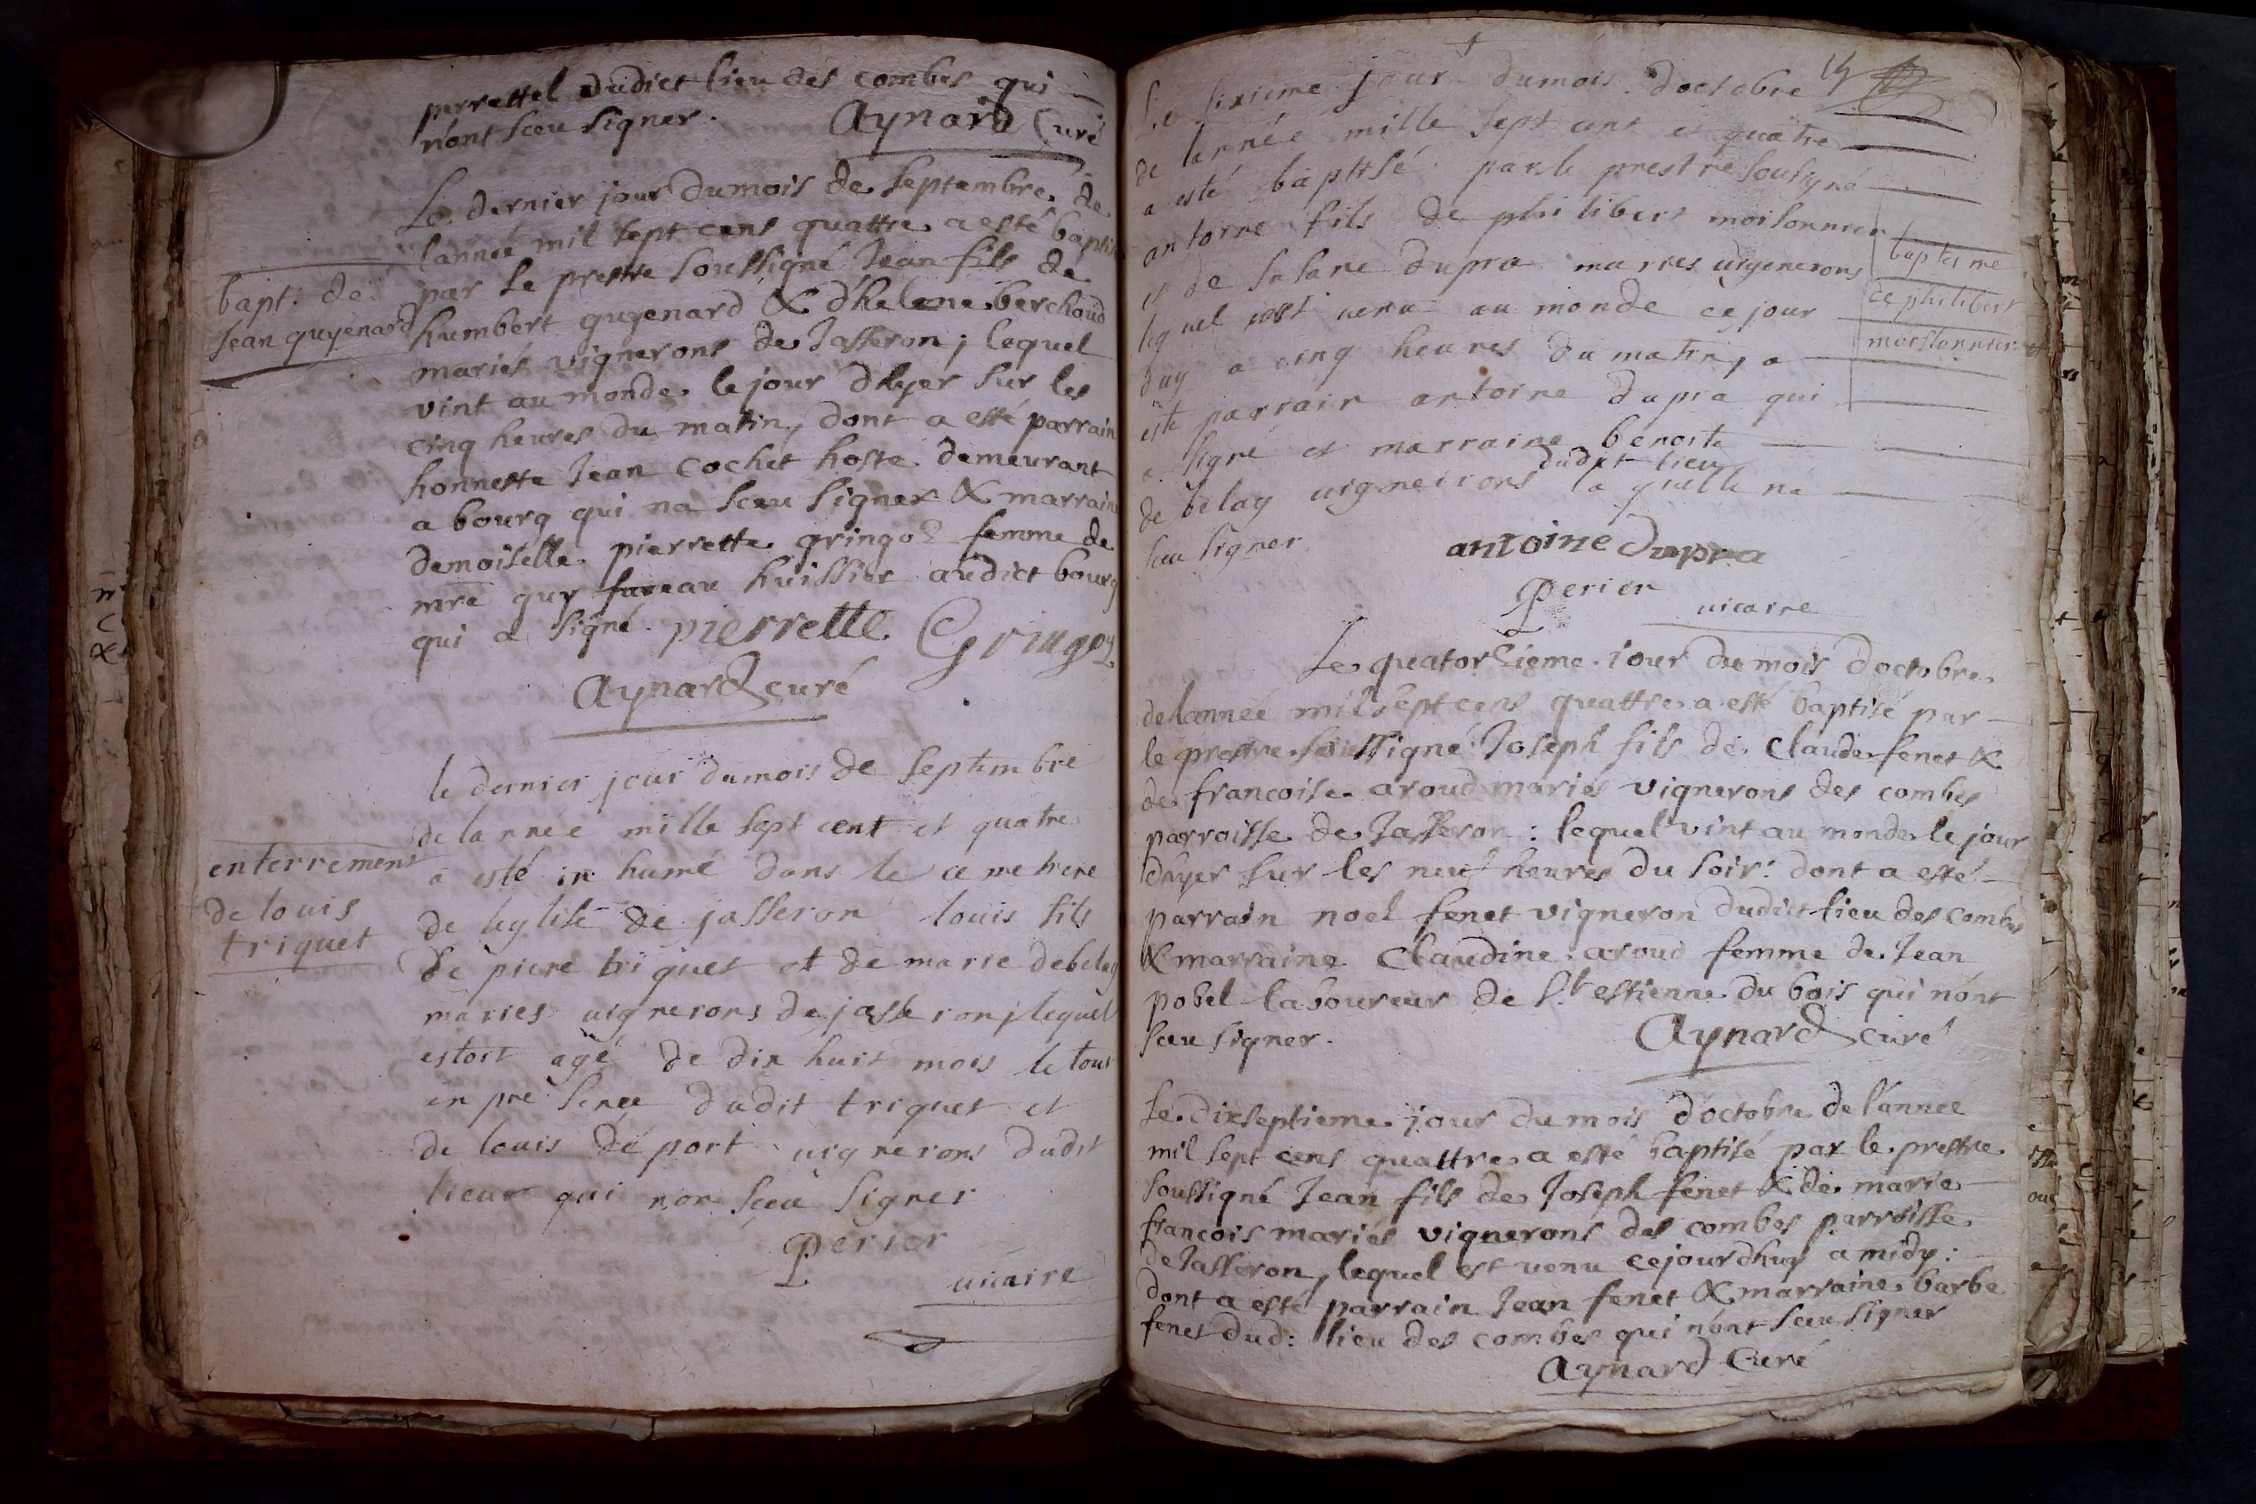 perrettel dudict lieu des combes qui
nont sceu signer. Aynard Curé
Le dernier jour du mois de septembre de
lannéé mil sept cens quattre a esté baptisé
par le prestre soussigné Jean fils de
humbert guyenard & d'helene berchoud
mariés vignerons de Jasseron; lequel
vint au monde le jour d'hyer sur les
cinq heures du matin, dont a esté parrain
honneste Jean Cochet hoste demeurant
a bourg qui na sceu signer & marraine
demoiselle pierrette gringoz femme de
mre guy fureau huissier audict bourg
qui a signé. pierrette Gringoz
Aynard curé
bapt: de
Jean guyenard
le dernier jour dumois de septembre
de lannéé mille sept cent et quatre
a esté in humé dans le cemetiere
de leglise de jasseron louis fils
de piere triquet et de marie debelay
mariés uignerons de jasseron, lequel
estoit agé de dix huit mois le tout
en pre sence dudit triquet et
de louis de port uignerons dudit
lieux qui non sceu signer
Perier
uicaire
enterrement
de louis
triquet
14
Le sixieme jour dumois doctobre
de lannéé mille sept cent et quatre
a esté baptisé par le prestre soussigné
antoine fils de philibert moisonnier
et de susane dupra mariés uignerons
lequel est venu au monde ce jour
duy a cinq heures du matin, a
esté parrain antoine dupra qui
a signé et marraine benoite
de belay uignerons dudit lieu la quelle na
sceu signer
antoine Dupra
Perier
uicaire
baptesme
de philibert
moissonnier
Le quatorzieme jour du mois doctobre
de lannéé mil sept cens quattre a esté baptisé par
le prestre soussigné Joseph fils de Claude fenet &
de francoise aroud mariés vignerons des combes
parroisse de Jasseron: lequel vint au monde le jour
dhyer sur les neuf heures du soir: dont a esté
parrain noel fenet vigneron dudict lieu des combes
& marraine Claudine aroud femme de Jean
pobel laboureur de St estienne du bois qui nont
sceu signer.
Aynard curé
Le dixseptieme jour du mois d'octobre de l'annéé
mil sept cens quattre a esté baptisé par le prestre
soussigné Jean fils de Joseph fenet & de marie
francois mariés vignerons des combes parroisse
de Jasseron, lequel est venu cejourdhuy a midy:
dont a esté parrain Jean fenet & marraine barbe
fenet dud: lieu des combes qui nont sceu signer
Aynard Curé